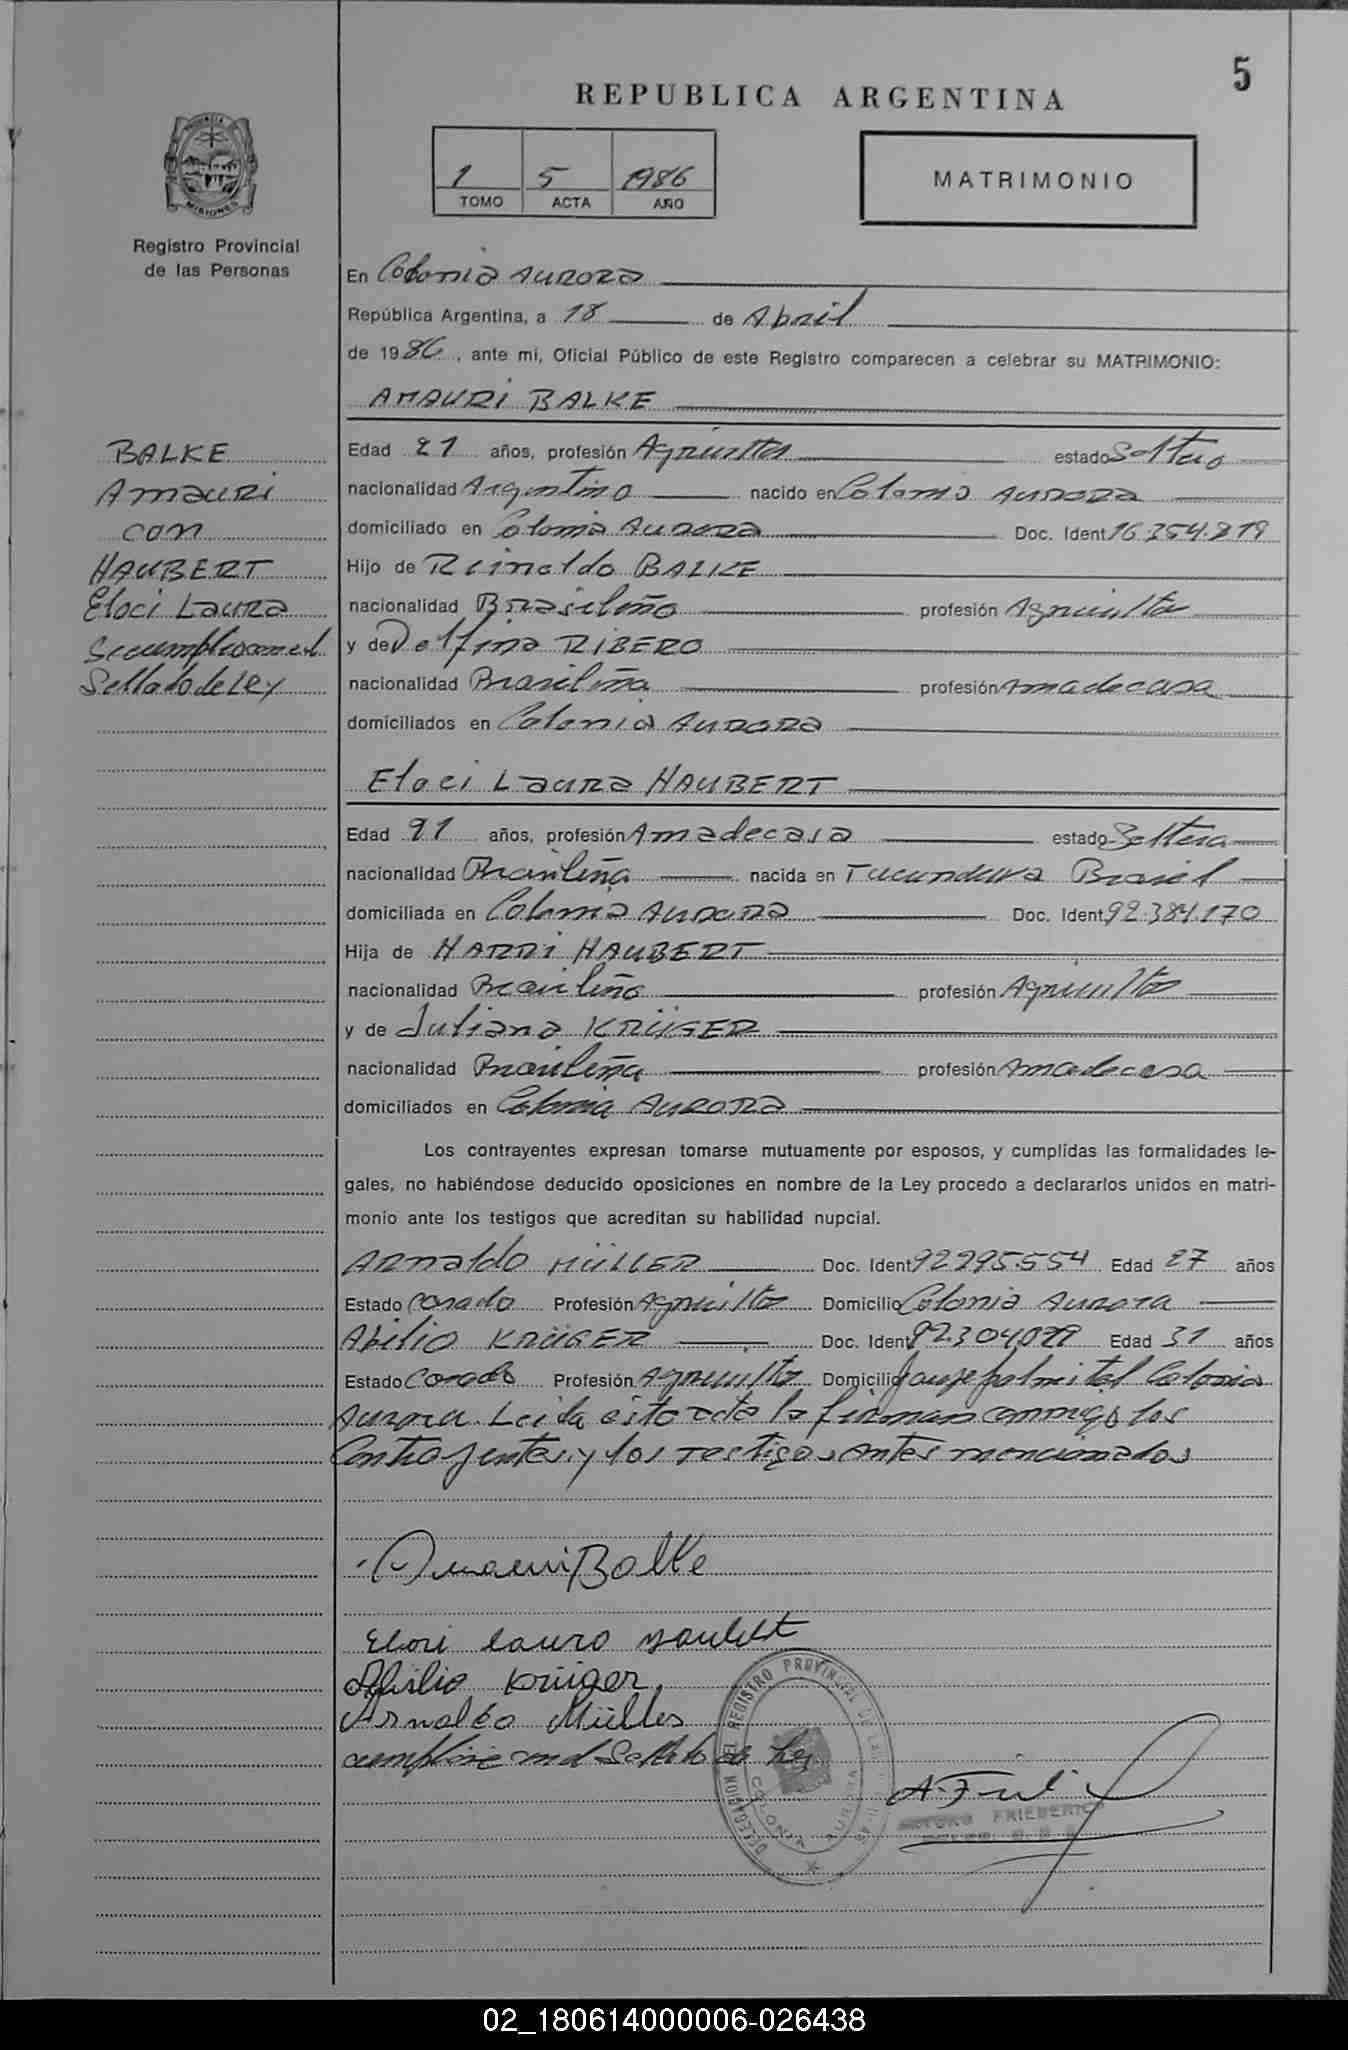 5
REPUBLICA ARGENTINA
1 5 1986
TOMO ACTA AÑO
MATRIMONIO
PROVINCIA DE
MISIONES
Registro Provincial
de las Personas
BALKE
Amauri
con
HAUBERT
Eloci Laura
Se cumplio con el
Sellado de Ley
En Colonia Aurora
República Argentina, a 18 de Abril
de 1986, ante mi, Oficial Público de este Registro comparecen a celebrar su MATRIMONIO:
AMAURI BALKE
Edad 21 años, profesión Agricultor estado Soltero
nacionalidad Argentino nacido en Colonia Aurora
domiciliado en Colonia Aurora Doc. Ident 16.354.819
Hijo de Reinaldo BALKE
nacionalidad Brasileño profesión Agricultor
y de Delfina RIBERO
nacionalidad Brasileña profesión Ama de casa
domiciliados en Colonia Aurora
Eloci Laura HAUBERT
Edad 21 años, profesión Ama de casa estado Soltera
nacionalidad Brasileña nacida en Tucunduva Brasil
domiciliada en Colonia Aurora Doc. Ident 92.384.170
Hija de HARRI HAUBERT
nacionalidad Brasileño profesión Agricultor
y de Juliana KRÜGER
nacionalidad Brasileña profesión Ama de casa
domiciliados en Colonia Aurora
Los contrayentes expresan tomarse mutuamente por esposos, y cumplidas las formalidades le-
gales, no habiéndose deducido oposiciones en nombre de la Ley procedo a declararlos unidos en matri-
monio ante los testigos que acreditan su habilidad nupcial.
Arnaldo MÜLLER Doc. Ident 92295.554 Edad 27 años
Estado Casado Profesión Agricultor Domicilio Colonia Aurora
Abilio KRÜGER Doc. Ident 92.304.079 Edad 31 años
Estado Casado Profesión Agricultor Domicilio palmital Colonia
Aurora. Leida esta acta la firman conmigo los
Contrayentes y los testigos antes mencionados
Amauri Balke
Eloci Laura Haubert
Abilio Krüger
Arnaldo Müller
cumplise con el Sellado de Ley
DELEGACION DEL REGISTRO PROVINCIAL DE LAS
COLONIA AURORA
A. Fri
ARTURO FRIEBERICH
02_180614000006-026438